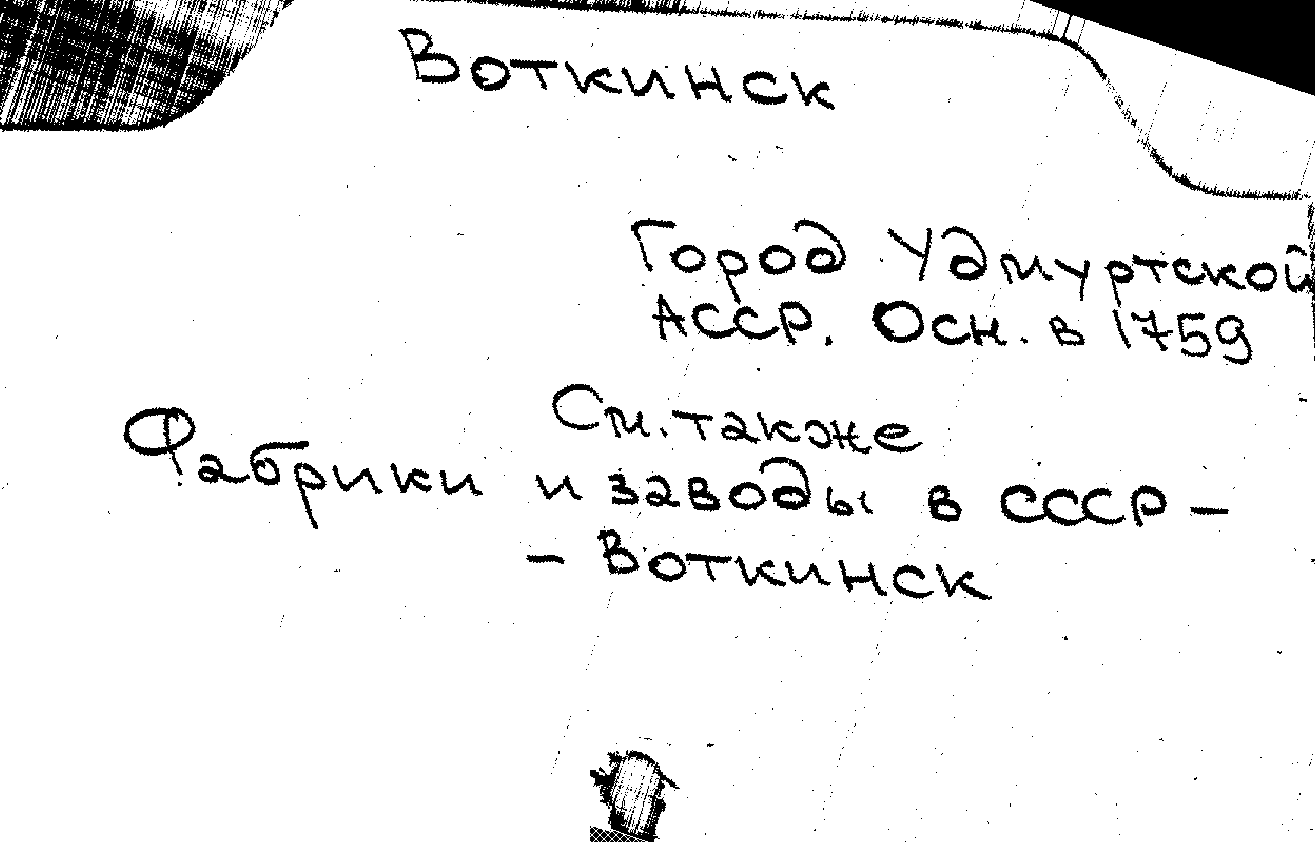 Воткинск
Город Удмуртской
АССР. Осн. в 1759
См. также
Фабрики и заводы в СССР –
– Воткинск